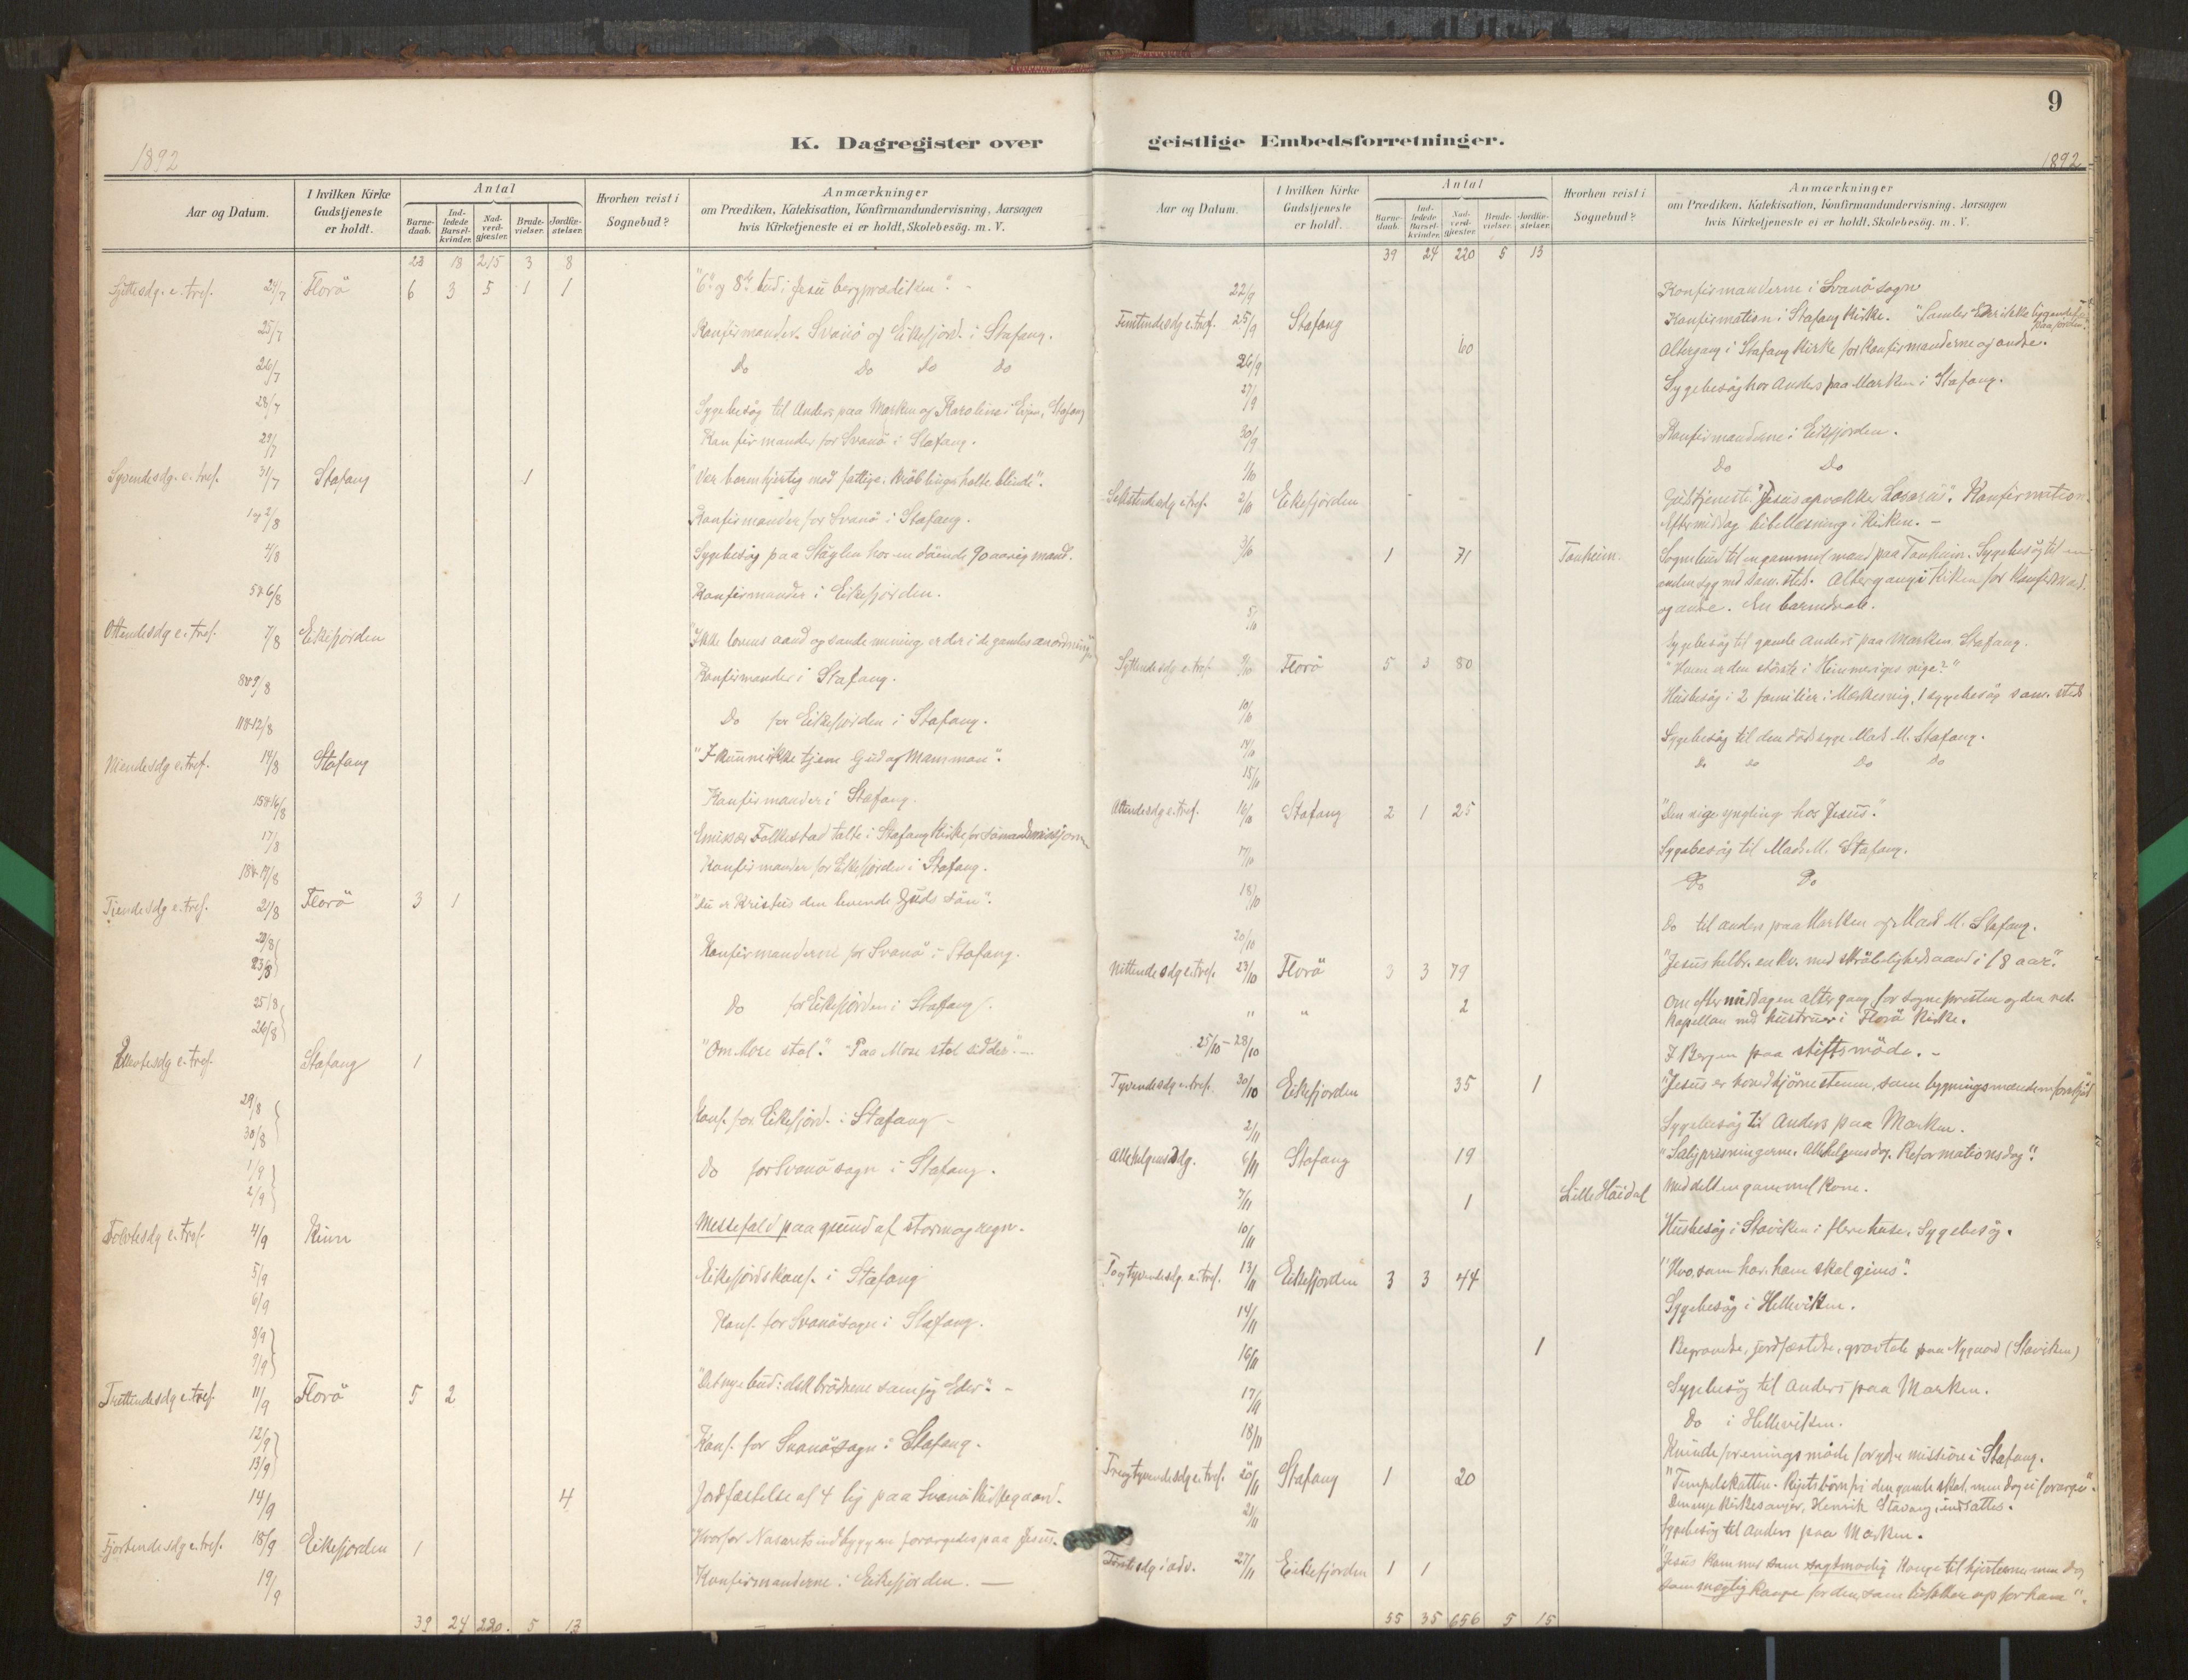 9
K. Dagregister over geistlige Embedsforretninger.
1892
1892
Aar og Datum.
I hvilken Kirke Gudstjeneste er holdt.
Antal
Barnedaab.
Indledede Barselkvinder.
Nadverdgjæster.
Brudevielser.
Jordfæstelser.
Hvorhen reist i Sognebud?
Anmærkninger
om Prædiken, Katekisation, Konfirmandundervisning, Aarsagen
hvis Kirketjeneste ei er holdt, Skolebesög. m. V.
23 18 215 3 8
Sjettesdg. e. tref. 24/7 Florö 6 3 5 1 1 "6te og 8de bud i Jesu bergprædiken". -
25/7 Konfirmander. Svanö og Eikefjord. i Stafang.
26/7 Do Do Do Do
28/7 Sygebesög til Anders paa Marken og Karoline i Stafang
29/7 Konfirmander for Svanö i Stafang.
Syvendesdg. e. tref. 31/7 Stafang 1 "Vær barmhjertig mod fattige, Kröblinger halte blinde".
1 og 2/8 Konfirmander for Svanö i Stafang.
4/8 Sygebesög paa hos en döende 90 aarig mand.
5 & 6/8 Konfirmander i Eikefjorden.
Ottendesdg e. tref. 7/8 Eikefjorden "Ikke lovens aand og sande mening er der i de gamles anordninger
8 & 9/8 Konfirmander i Stafang.
11 & 12/8 Do for Eikefjorden i Stafang.
Niendesdg e. tref. 14/8 Stafang "I kunne ikke tjene Gud og Mammon".
15 & 16/8 Konfirmander i Stafang.
17/8 Emissær Folkestad talte i Stafang Kirke for Sömandsmissjonen
18 & 19/8 Konfirmander for Eikefjorden i Stafang.
Tiendesdg e. tref. 21/8 Florö 3 1 "Du er Kristus den levende Guds Sön".
23/8 Konfirmanderne for Svanö i Stafang.
25/8 26/8 Do for Eikefjorden i Stafang.
Ellevtesdg e. tref. Stafang 1 "Om Mose stol." "Paa Mose stol sidder". -
29/8 30/8 Konf. for Eikefjord. i Stafang -
1/9 2/9 Do for Svanö sogn i Stafang.
Tolvtesdg e. tref. 4/9 Kinn Messefald paa grund af storm og regn.
5/9 6/9 Eikefjordskonf. i Stafang
8/9 9/9 Konf. for Svanösogn i Stafang.
Trettendesdg e. tref. 11/9 Florö 5 2 "Det nye bud: elsk brödrene som jeg Eder". -
12/9 13/9 Konf. for Svanösogn i Stafang.
14/9 4 Jordfæstelse af 4 lig paa Svanö Kirkegaard.
Fjortendesdg e. tref. 18/9 Eikefjorden 1 Hvorfor Nasarets indbyggere forargedes paa Jesus.
19/9 Konfirmanderne i Eikefjorden. -
39 24 220. 5 13
Aar og Datum.
I hvilken Kirke Gudstjeneste er holdt.
Antal
Barnedaab.
Indledede Barselkvinder.
Nadverdgjæster.
Brudevielser.
Jordfæstelser.
Hvorhen reist i Sognebud?
Anmærkninger
om Prædiken, Katekisation, Konfirmandundervisning, Aarsagen
hvis Kirketjeneste ei er holdt, Skolebesög. m. V.
39 24 220 5 13
22/9 Konfirmanderne i Svanö sogn
Femtendesdg e. tref. 25/9 Stafang Konfirmation i Stafang Kirke. "Samler Eder ikke liggendefæ paa jorden".
60 Altergang i Stafang Kirke for konfirmanderne og andre.
26/9 Sygebesög hos Anders paa Marken i Stafang.
27/9
30/9 Konfirmanderne i Eikefjorden.
1/10 Do Do
Sekstendesdg e. tref. 2/10 Eikefjorden Gudstjeneste. "Jesus opvækker Lasarus". Konfirmation.
Aftermiddag bibellæsning i kirken. -
3/10 1 71 Tonheim. Sognebud til en gammel mand paa Tonheim. Sygebesög til en
anden syg ved sam. sted. Altergang i Kirken for Konfirmand.
og andre. En barnedaab.
5/10 Sygebesög til gamle Anders paa Marken Stafang.
Syttendesdg e. tref. 9/10 Florö 5 3 80 "Hvem er den störste i Himmeriges rige?"
Husbesög i 2 familier i 1 sygebesög sam. sted.
10/10 Sygebesög til den dödssyge Mads M. Stafang.
14/10 Do do Do Do
15/10
Attendesdg e. tref. 16/10 Stafang 2 1 25 "Den rige yngling hos Jesus".
17/10 Sygebesög til Mads M. Stafang.
18/10 Do Do
20/10 Do til Anders paa Marken og Mads M. Stafang.
Nittendesdg e. tref. 23/10 Florö 3 3 79 "Jesus helbr. en kv. med skröbelighedsaand i 18 aar".
" " 2 Om eftermiddagen altergang for sognepresten og den res.
kapellan med hustruer i Florö Kirke.
25/10 - 28/10 I Bergen paa stiftsmöde. -
Tyvendesdg e. tref. 30/10 Eikefjorden 35 1 "Jesus er hovedhjörnestenen, som bygningsmændene forskjöd
2/11 Sygebesög til Anders paa Marken.
Allehelgensdg. 6/11 Stafang 19 "Saligprisningerne. Allehelgensdag. Reformationsdag".
7/11 1 Lille Höidal Meddelt en gammel kone.
10/11 Husbesög i Staviken i flere huse. Sygebesög.
Togtyvendesdg. e. tref. 13/11 Eikefjorden 3 3 44 "Hvo, som har, ham skal gives".
14/11 Sygebesög i Helleviken.
16/11 1 Begravelse, jordfæstelse, gravtale paa Nygaard (Staviken)
17/11 Sygebesög til Anders paa Marken.
18/11 Do i Helleviken.
Kvindeforeningsmöde for ydre mission i Stafang.
Treogtyvendesdg e. tref. 20/11 Stafang 1 20 "Tempelskatten. Rigets börn fri den gamle skat, men dog ei forarge".
Den nye kirkesanger, Henrik Stavang, indsattes.
21/11 Sygebesög til Anders paa Marken.
Förstesdg i adv. 27/11 Eikefjorden 1 1 "Jesus kommer som sagtmodig Konge til hjerterne, men dog
som mægtig konge for dem, som lukker op for ham".
55 35 656 5 15